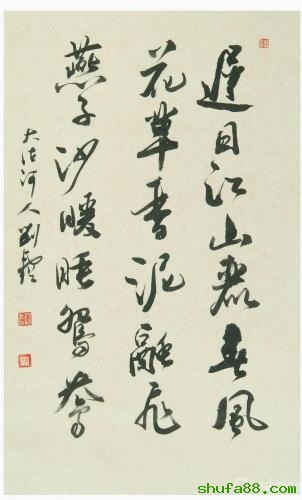 遲日江山麗春風
花草香泥融飛
燕子沙暖睡鴛鴦
大沽河人劉
shufa88.com